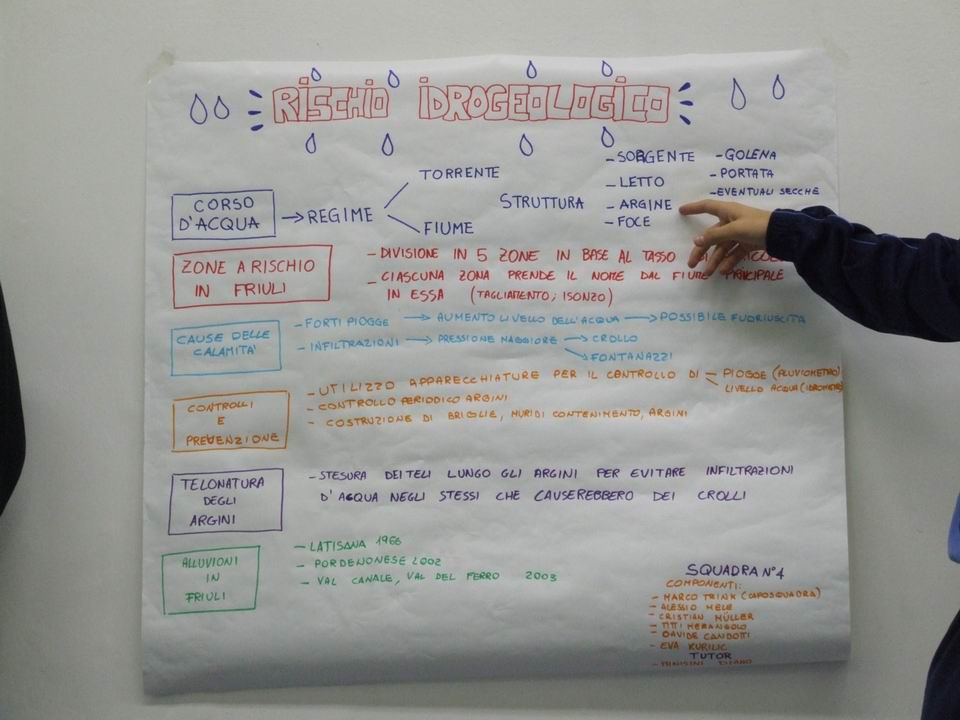 RISCHIO IDROGEOLOGICO
CORSO
D'ACQUA
REGIME
TORRENTE
FIUME
STRUTTURA
- SORGENTE
- LETTO
- ARGINE
- FOCE
- GOLENA
- PORTATA
- EVENTUALI SECCHE
ZONE A RISCHIO
IN FRIULI
- DIVISIONE IN 5 ZONE IN BASE AL TASSO
- CIASCUNA ZONA PRENDE IL NOME DAL FIUME PRINCIPALE
IN ESSA (TAGLIAMENTO; ISONZO)
CAUSE DELLE
CALAMITA'
- FORTI PIOGGE → AUMENTO LIVELLO DELL'ACQUA → POSSIBILE FUORIUSCITA
- INFILTRAZIONI → PRESSIONE MAGGIORE → CROLLO
→ FONTANAZZI
CONTROLLI
E
PREVENZIONE
- UTILIZZO APPARECCHIATURE PER IL CONTROLLO DI - PIOGGE (PLUVIOMETRO)
LIVELLO ACQUA (IDROMETRO)
- CONTROLLO PERIODICO ARGINI
- COSTRUZIONE DI BRIGLIE, MURI DI CONTENIMENTO, ARGINI
TELONATURA
DEGLI
ARGINI
- STESURA DEI TELI LUNGO GLI ARGINI PER EVITARE INFILTRAZIONI
D'ACQUA NEGLI STESSI CHE CAUSEREBBERO DEI CROLLI
ALLUVIONI
IN
FRIULI
- LATISANA 1966
- PORDENONESE 2002
- VAL CANALE, VAL DEL FERRO 2003
SQUADRA N°4
COMPONENTI:
- MARCO TRINK (CAPOSQUADRA)
- ALESSIO MELE
- CRISTIAN MÜLLER
- TITTI MERANGOLO
- DAVIDE CANDOTTI
- EVA KURILIC
TUTOR